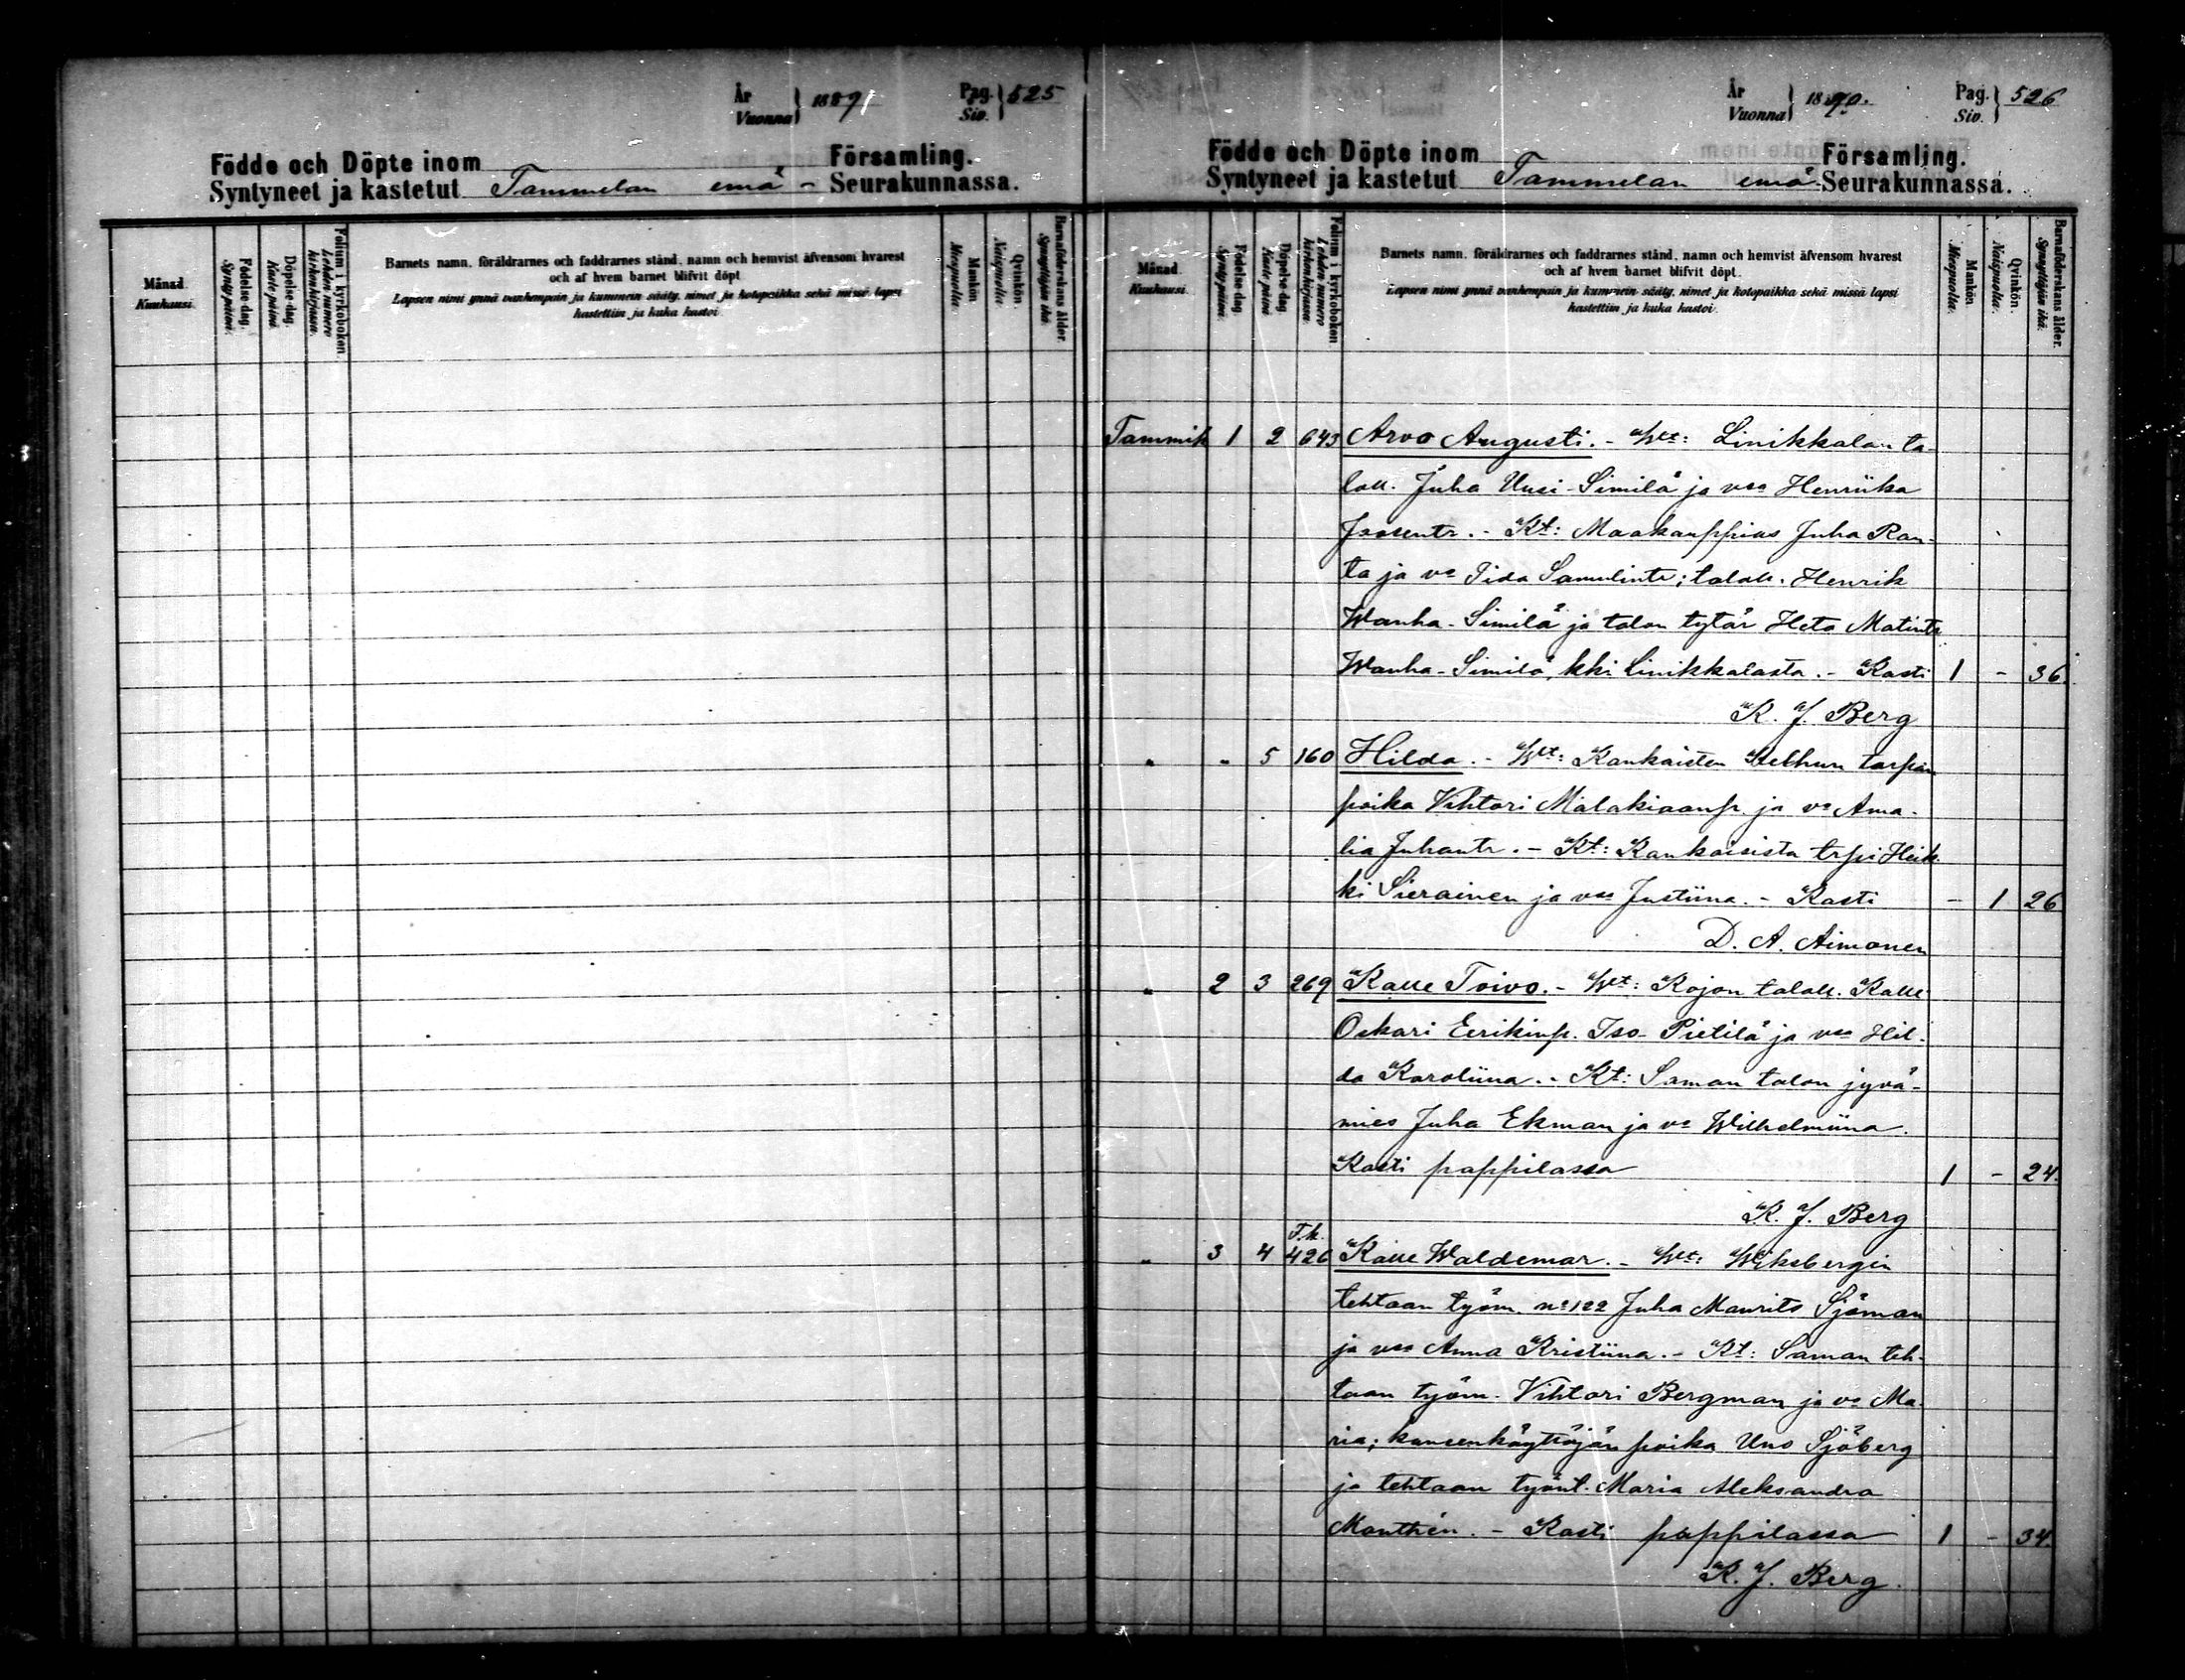 År
Vuonna } 1889
Pag.
Siv. } 525
Födde och Döpte inom Församling.
Syntyneet ja kastetut Tammelan emä- Seurakunnassa.
Månad.
Kuukausi.
Födelse dag.
Syntypäivä.
Döpelse dag.
Kastepäivä.
Folium i kyrkoboken.
Lehden numero kirkonkirjassa.
Barnets namn, föräldrarnes och faddrarnes stånd, namn och hemvist äfvensom hvarest
och af hvem barnet blifvit döpt.
Lapsen nimi ynnä vanhempain ja kummein sääty, nimet ja kotopaikka sekä missä lapsi
kastettiin ja kuka kastoi.
Mankön.
Miespuolia.
Qvinkön.
Naispuolia.
Barnaföderskans ålder.
Synnyttäjän ikä.
År
Vuonna } 1890.
Pag.
Siv. } 526
Födde och Döpte inom Församling.
Syntyneet ja kastetut Tammelan emä- Seurakunnassa.
Månad.
Kuukausi.
Födelse dag.
Syntypäivä.
Döpelse dag.
Kastepäivä.
Folium i kyrkoboken.
Lehden numero kirkonkirjassa.
Barnets namn, föräldrarnes och faddrarnes stånd, namn och hemvist äfvensom hvarest
och af hvem barnet blifvit döpt.
Lapsen nimi ynnä vanhempain ja kummein sääty, nimet ja kotopaikka sekä missä lapsi
kastettiin ja kuka kastoi.
Mankön.
Miespuolia.
Qvinkön.
Naispuolia.
Barnaföderskans ålder.
Synnyttäjän ikä.
Tammik 1 2 643 Arvo Augusti. - Wt: Linikkalan ta-
loll. Juha Uusi-Similä ja vsa Henriika
Joosentr. - Kt: Maakauppias Juha Ran-
ta ja va Iida Samulintr; taloll. Henrik
Wanha-Similä ja talon tytär Heta Matintr
Wanha-Similä, kki Linikkalasta. - Kasti 1 - 36.
K. J. Berg
" " 5 160 Hilda. - Wt: Kankaisten torpan
poika Vihtori Malakiaanp. ja va Ama-
lia Juhantr. - Kt: Kankaisista trpi Heik-
ki Sierainen ja vsa Justiina. - Kasti - 1 26
D. A. Aimonen
" 2 3 269 Kalle Toivo. - Wt: Kojon taloll. Kalle
Oskari Eerikinp. Iso-Pietilä ja vsa Hil-
da Karoliina. - Kt: Saman talon jyvä-
mies Juha Ekman ja va Wilhelmiina.
Kasti pappilassa 1 - 24.
K. J. Berg
T.k.
" 3 4 426 Kalle Waldemar. - Wt: Wiksbergin
tehtaan työm. no 122 Juha Maurits Sjöman
ja vsa Anna Kristiina. - Kt: Saman teh-
taan työm. Vihtori Bergman ja va Ma-
ria; koneenkäyttäjän poika Uno Sjöberg
ja tehtaan työnt. Maria Aleksandra
Manthén. - Kasti pappilassa 1 - 34.
K. J. Berg.